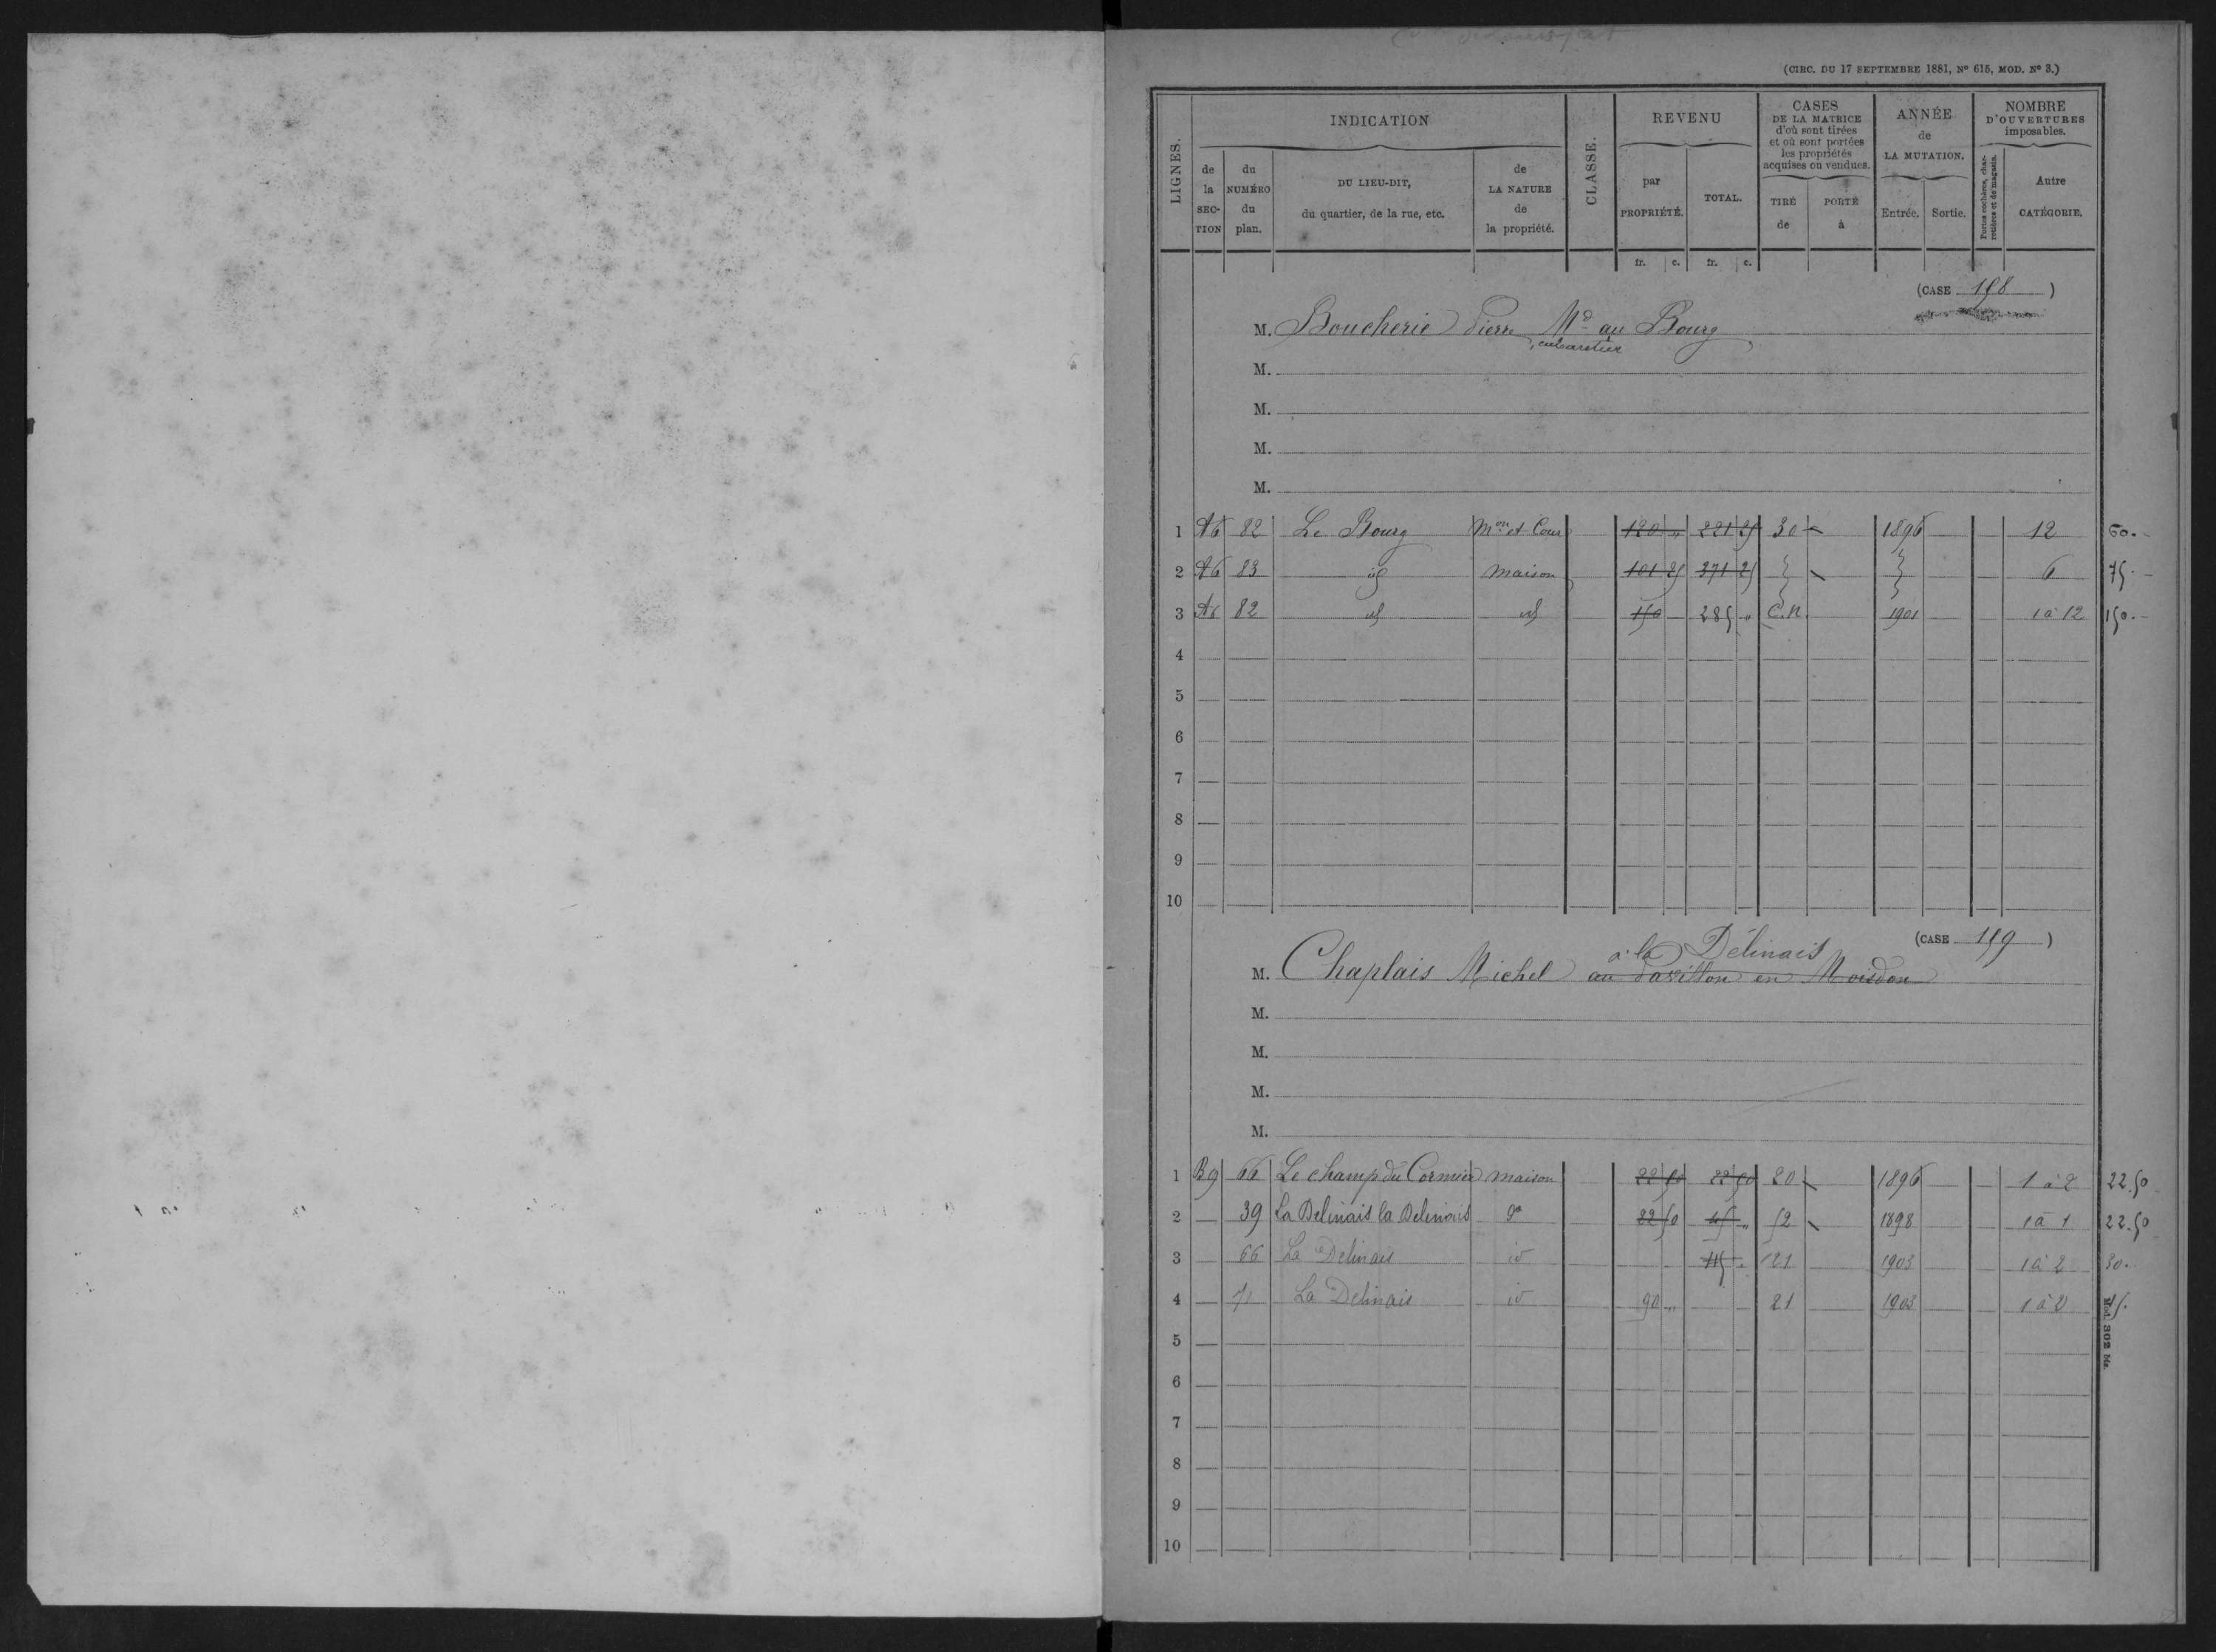 (CIRC. DU 17 SEPTEMBRE 1881, Nº 615, MOD. Nº 3.)
LIGNES. INDICATION CLASSE. REVENU CASES DE LA MATRICE d'où sont tirées et où sont portées les propriétés acquises ou vendues. ANNÉE de LA MUTATION. NOMBRE D'OUVERTURES imposables.
de la SECTION du NUMÉRO du plan. DU LIEU-DIT, du quartier, de la rue, etc. de LA NATURE de la propriété. par PROPRIÉTÉ. TOTAL. TIRÉ de PORTÉ à Entrée. Sortie. Portes cochères, charretières et de magasin. Autre CATÉGORIE.
fr. c. fr. c.
(CASE 158)
M. Boucherie Pierre Md au Bourg
M.
M.
M.
M.
1 A6 82 Le Bourg Mon et Cour 120 " 221 25 30 1896 12 60.
2 A6 83 id maison 101 25 371 25 6 75.
3 A6 82 id id 150 285 " C.N. 1901 1 à 12 150.
4
5
6
7
8
9
10
(CASE 159)
à la Délinais
M. Chaplais Michel au Pavillon en Moisdon
M.
M.
M.
M.
1 B9 66 Le champ du Cormier maison 22 50 22 50 20 1896 1 à 2 22.50
2 39 La Delinais la Delinais do 22 50 45 " 52 1898 1 à 1 22.50
3 66 La Delinais id 121 1903 1 à 2 30.
4 71 La Delinais id 90 " 21 1903 1 à 2
5
6
7
8
9
10
Mod. 302 Ms.